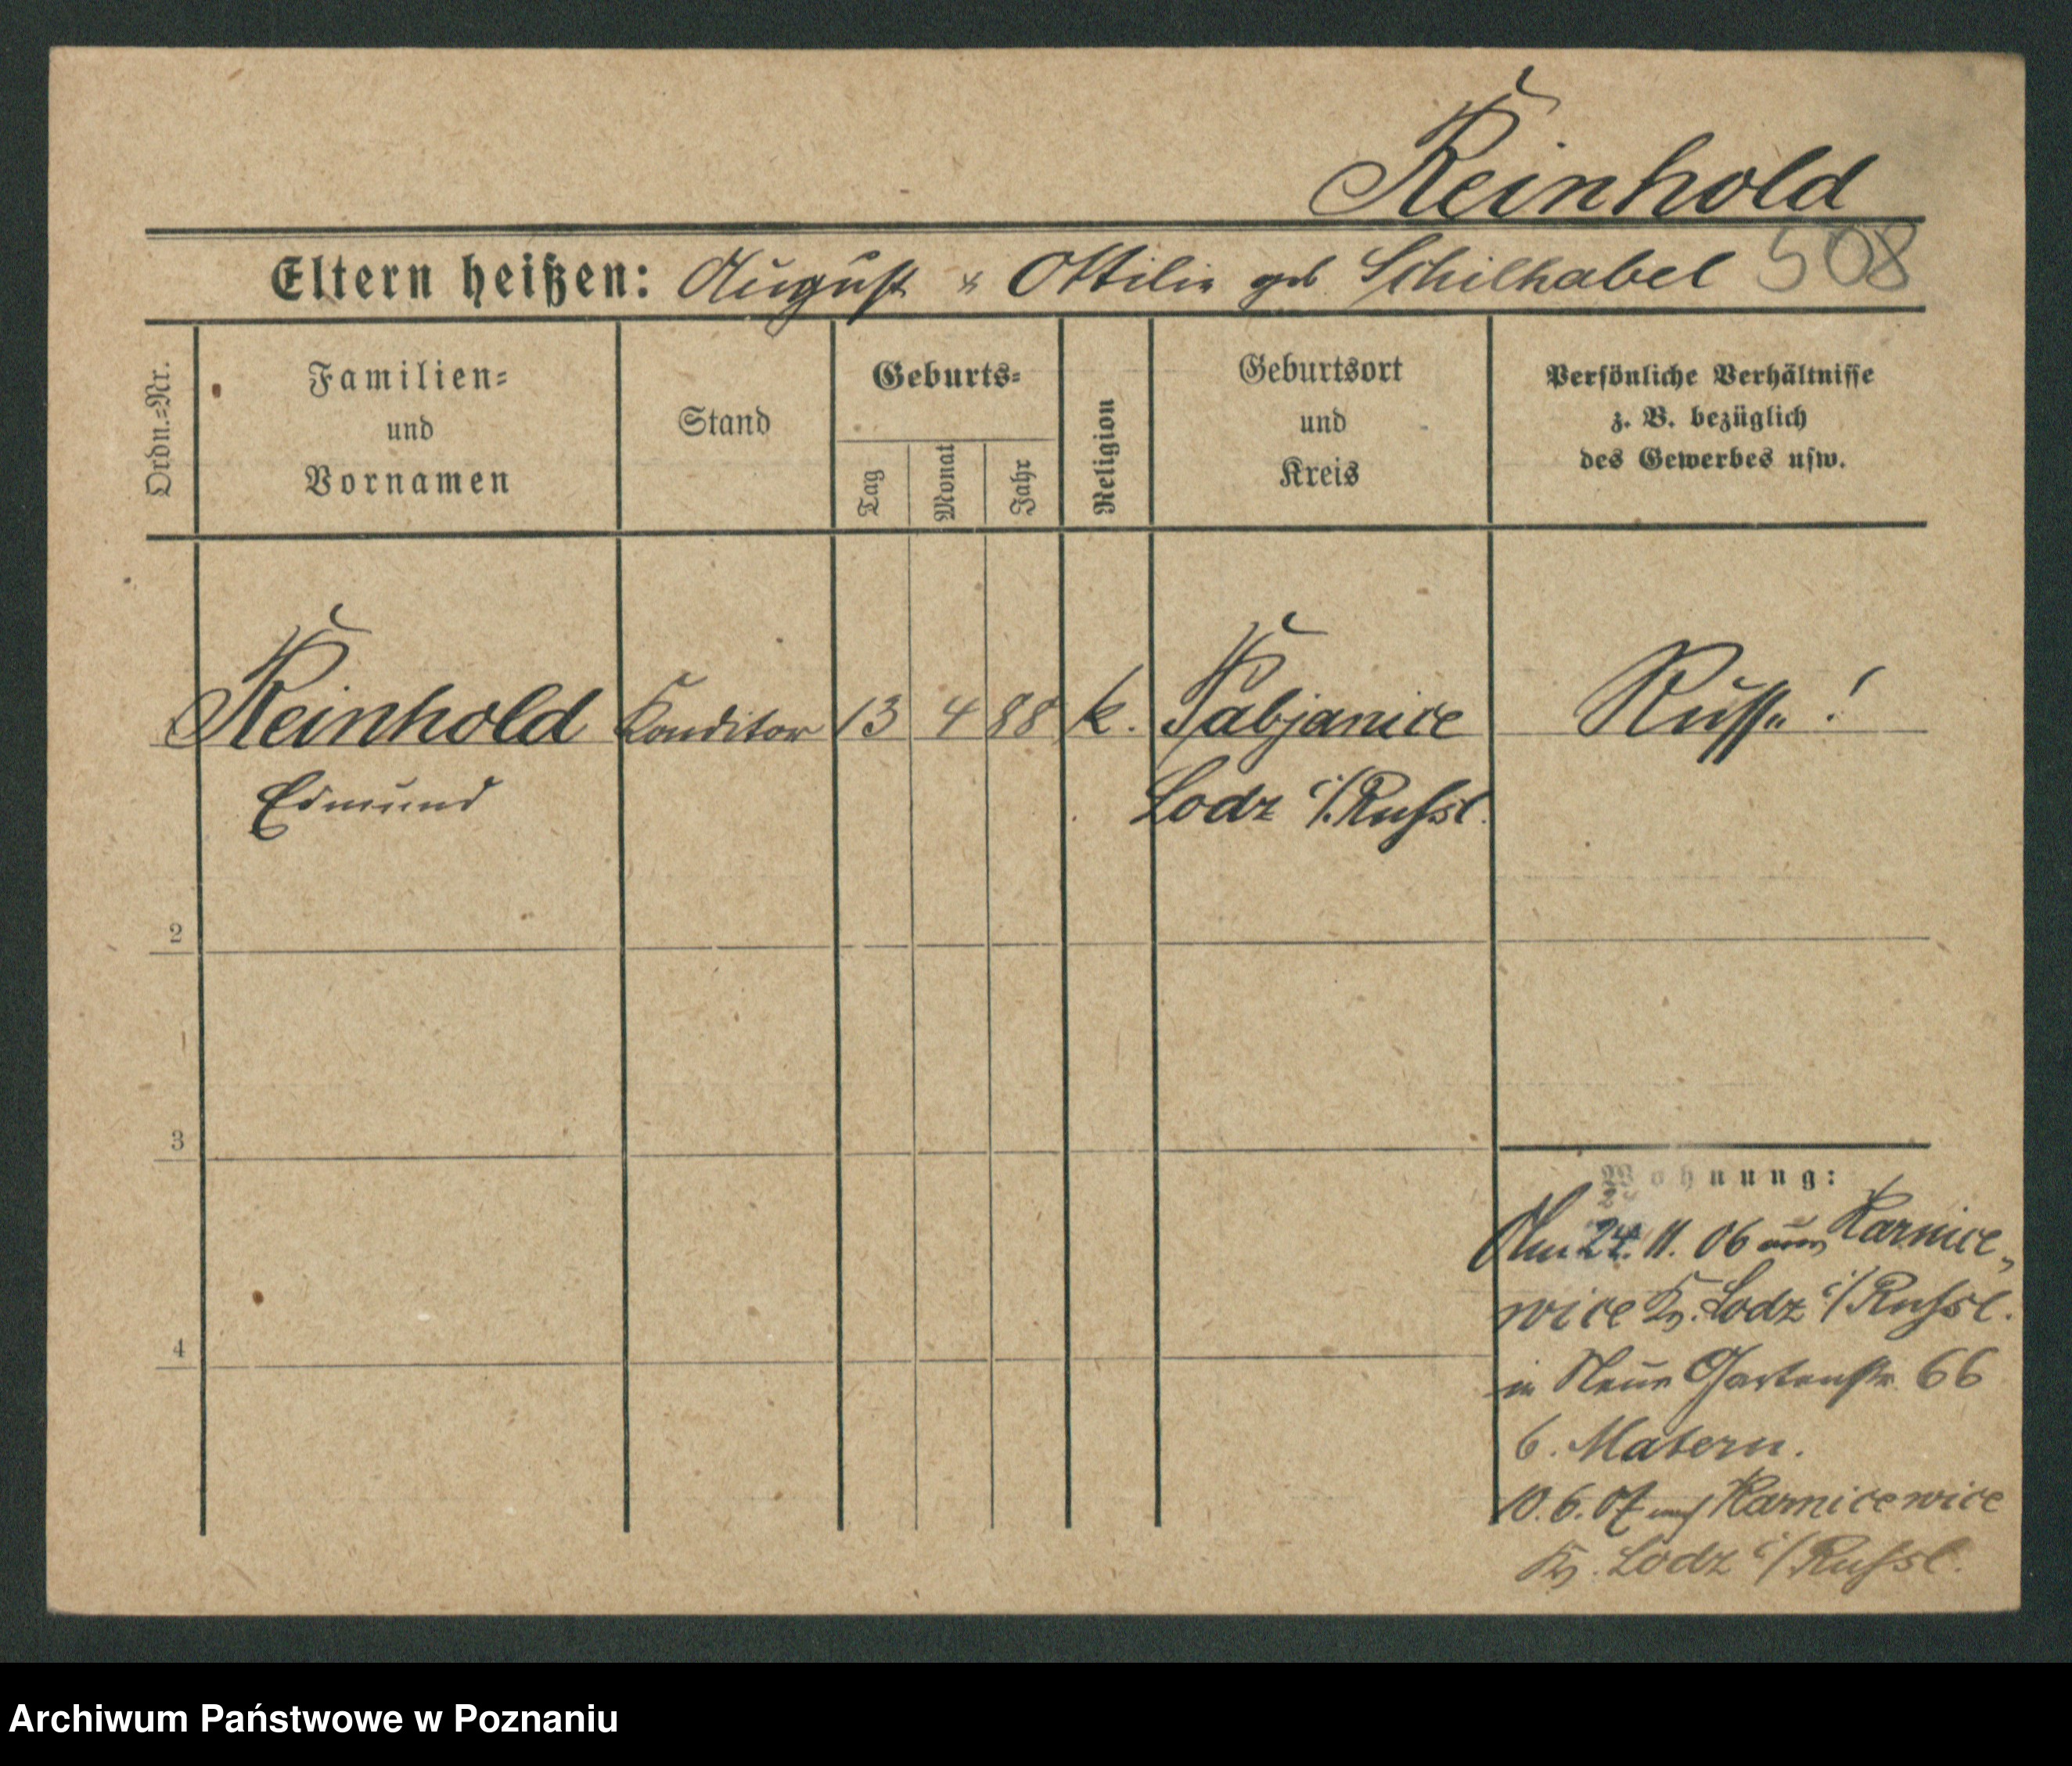 Reinhold
Eltern heißen: August & Ottilie geb. Schilhabel 508
Ordn.=Nr.
Familien=
und
Vornamen
Stand
Geburts=
Tag
Monat
Jahr
Religion
Geburtsort
und
Kreis
Persönliche Verhältnisse
z. B. bezüglich
des Gewerbes usw.
Reinhold Konditor 13 4 88 k. Pabjanice Russe!
Edmund Lodz i/Russl.
2
3
4
Wohnung:
Am 24. 11. 06 aus Karnice„
wice Kr. Lodz i/Russl.
in Neue Gartenstr. 66
b. Matern.
10. 6. 07 nach Karnicewice
Kr. Lodz i/Russl.
Archiwum Państwowe w Poznaniu